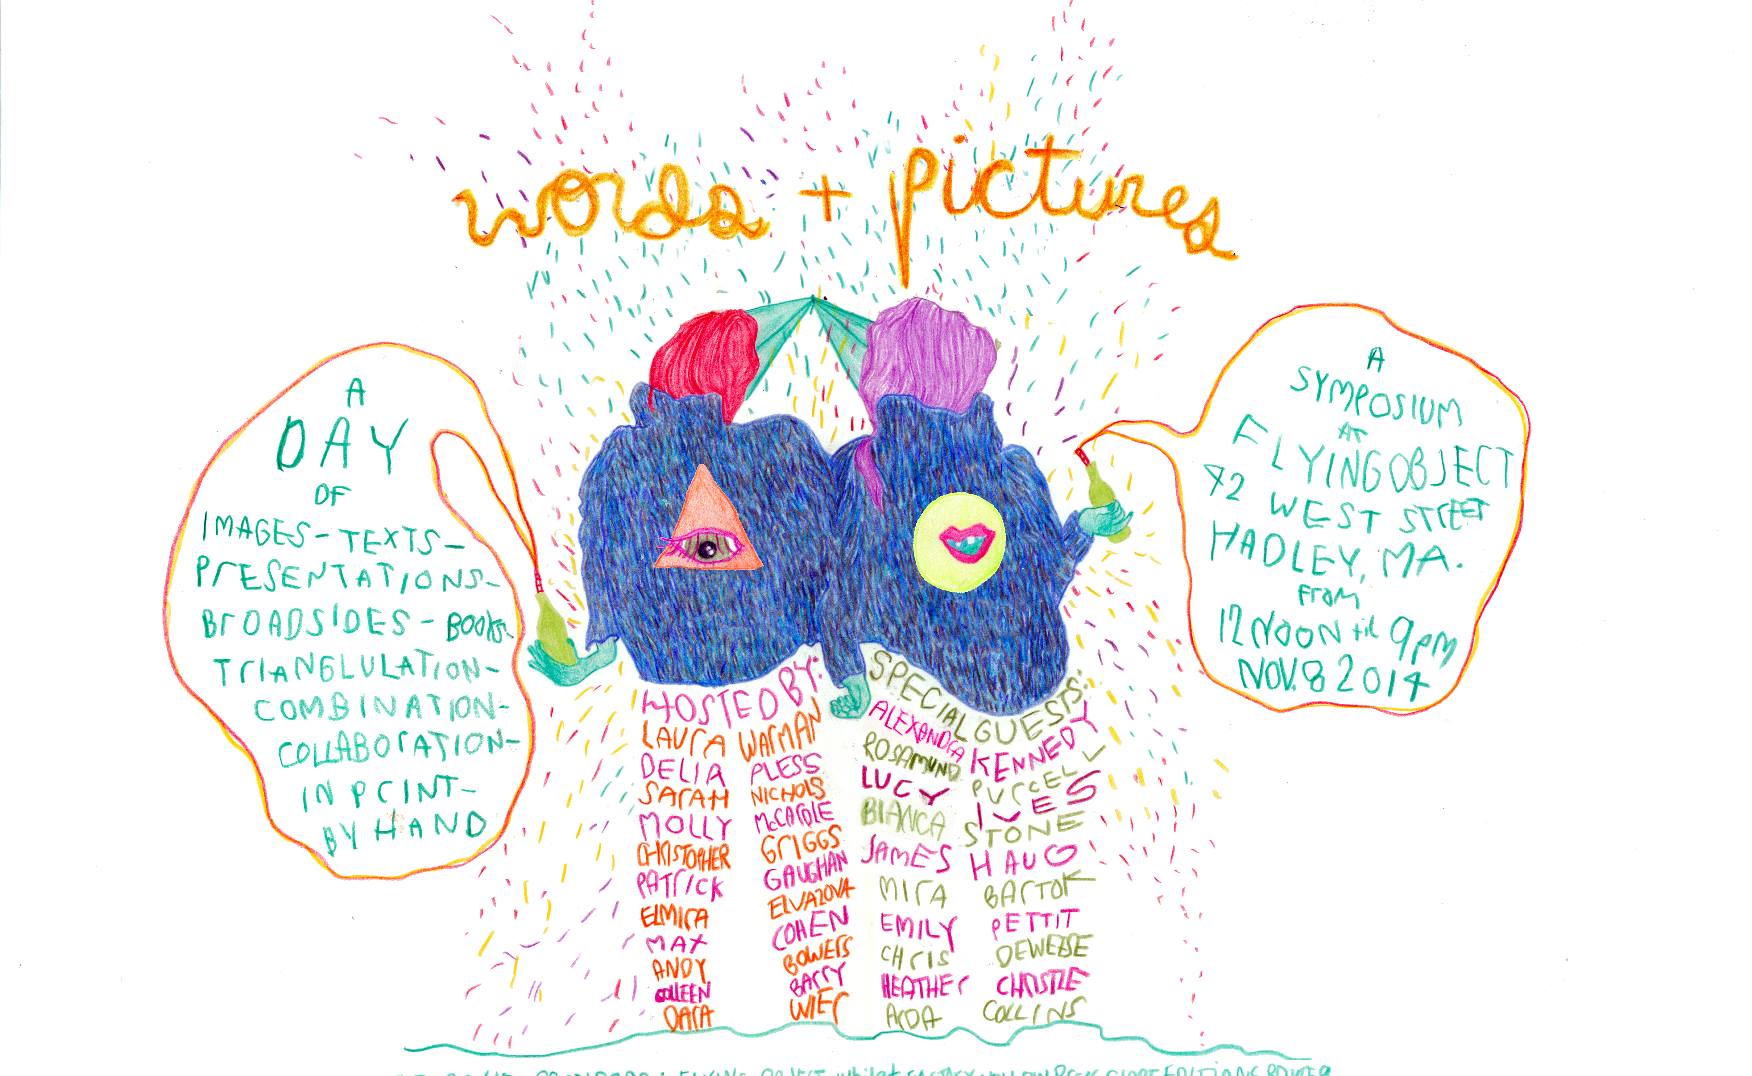 words + pictures
A
DAY
OF
IMAGES - TEXTS -
PRESENTATIONS -
BROADSIDES - BOOKS -
TRIANGLULATION -
COMBINATION -
COLLABORATION -
IN PRINT -
BY HAND
A
SYMPOSIUM
AT
FLYING OBJECT
42 WEST STREET
HADLEY, MA.
FROM
12 NOON til 9pm
NOV. 8 2014
HOSTED BY:
LAURA WARMAN
DELIA PLESS
SARAH NICHOLS
MOLLY McCARDLE
CHRISTOPHER GRIGGS
PATRICK GAUGHAN
ELMIRA ELVAZOVA
MAX COHEN
ANDY BOWERS
COLLEEN BARRY
DARA WIER
SPECIAL GUESTS:
ALEXANDRA KENNEDY
ROSAMUND PURCELL
LUCY IVES
BIANCA STONE
JAMES HAUG
MIRA BARTOK
EMILY PETTIT
CHRIS DEWEESE
HEATHER CHRISTLE
ARDA COLLINS